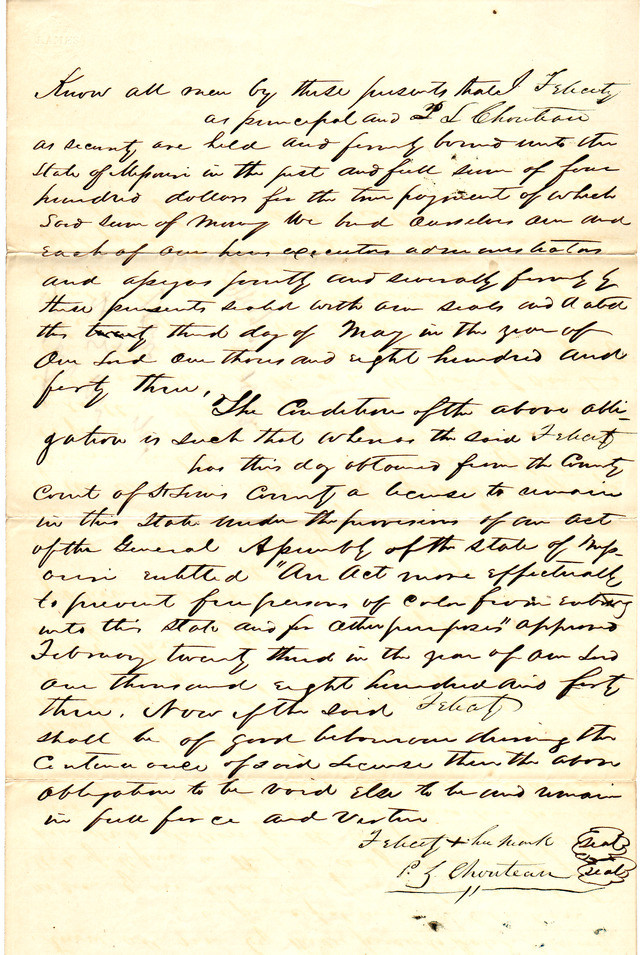 Know all men by these presents that I Felicity
as principal and P L Chouteau
as security are held and firmly bound unto the
State of Missouri in the just and full sum of four
hundred dollars for the true payment of which
Said sum of money We bind Ourselves our and
Each of our heirs executors administrators
and assigns jointly and severally firmly by
these presents sealed with our seals and dated
this twenty third day of May in the year of
Our Lord One thousand eight hundred and
forty three.
The Condition of the above obli-
gation is such that whereas the said Felicity
has this day obtained from the County
Court of St Louis County a license to remain
in this State under the provisions of an act
of the General Assembly of the State of Miss-
ouri entitled "An Act more effectually
to prevent free persons of color from entering
into this State and for other purposes" approved
February twenty third in the year of our Lord
one thousand eight hundred and forty
three. Now if the said Felicity
shall be of good behaviour during the
Continuance of said License then the above
obligation to be void Else to be and remain
in full force and Virtue
Felicity + her mark seal
P. L Chouteau seal